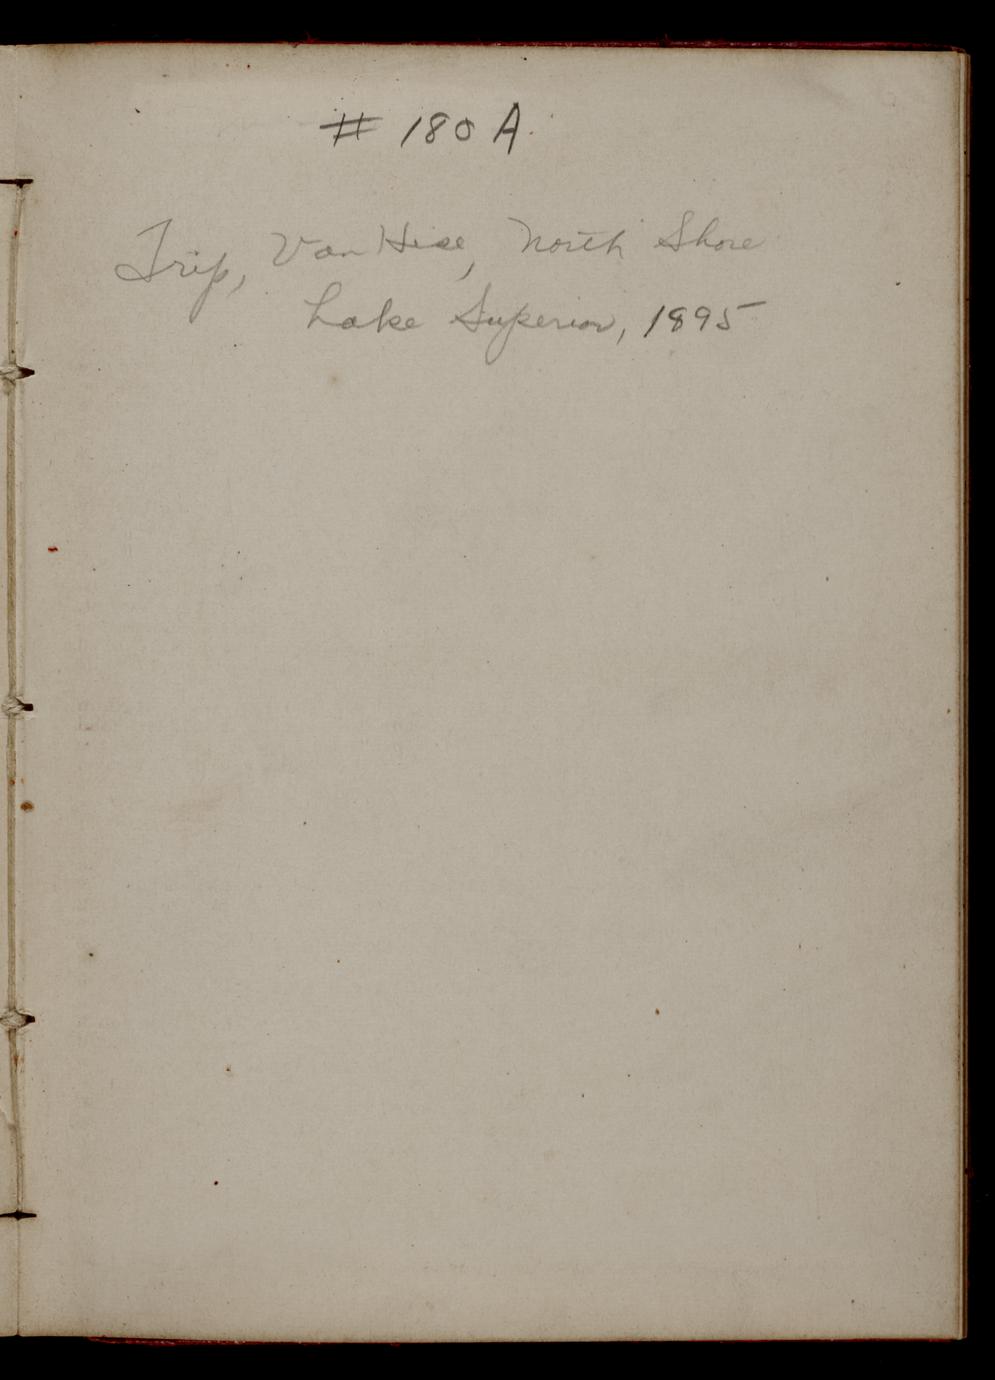 # 180 A.
Trip, Van Hise, North Shore
Lake Superior, 1895